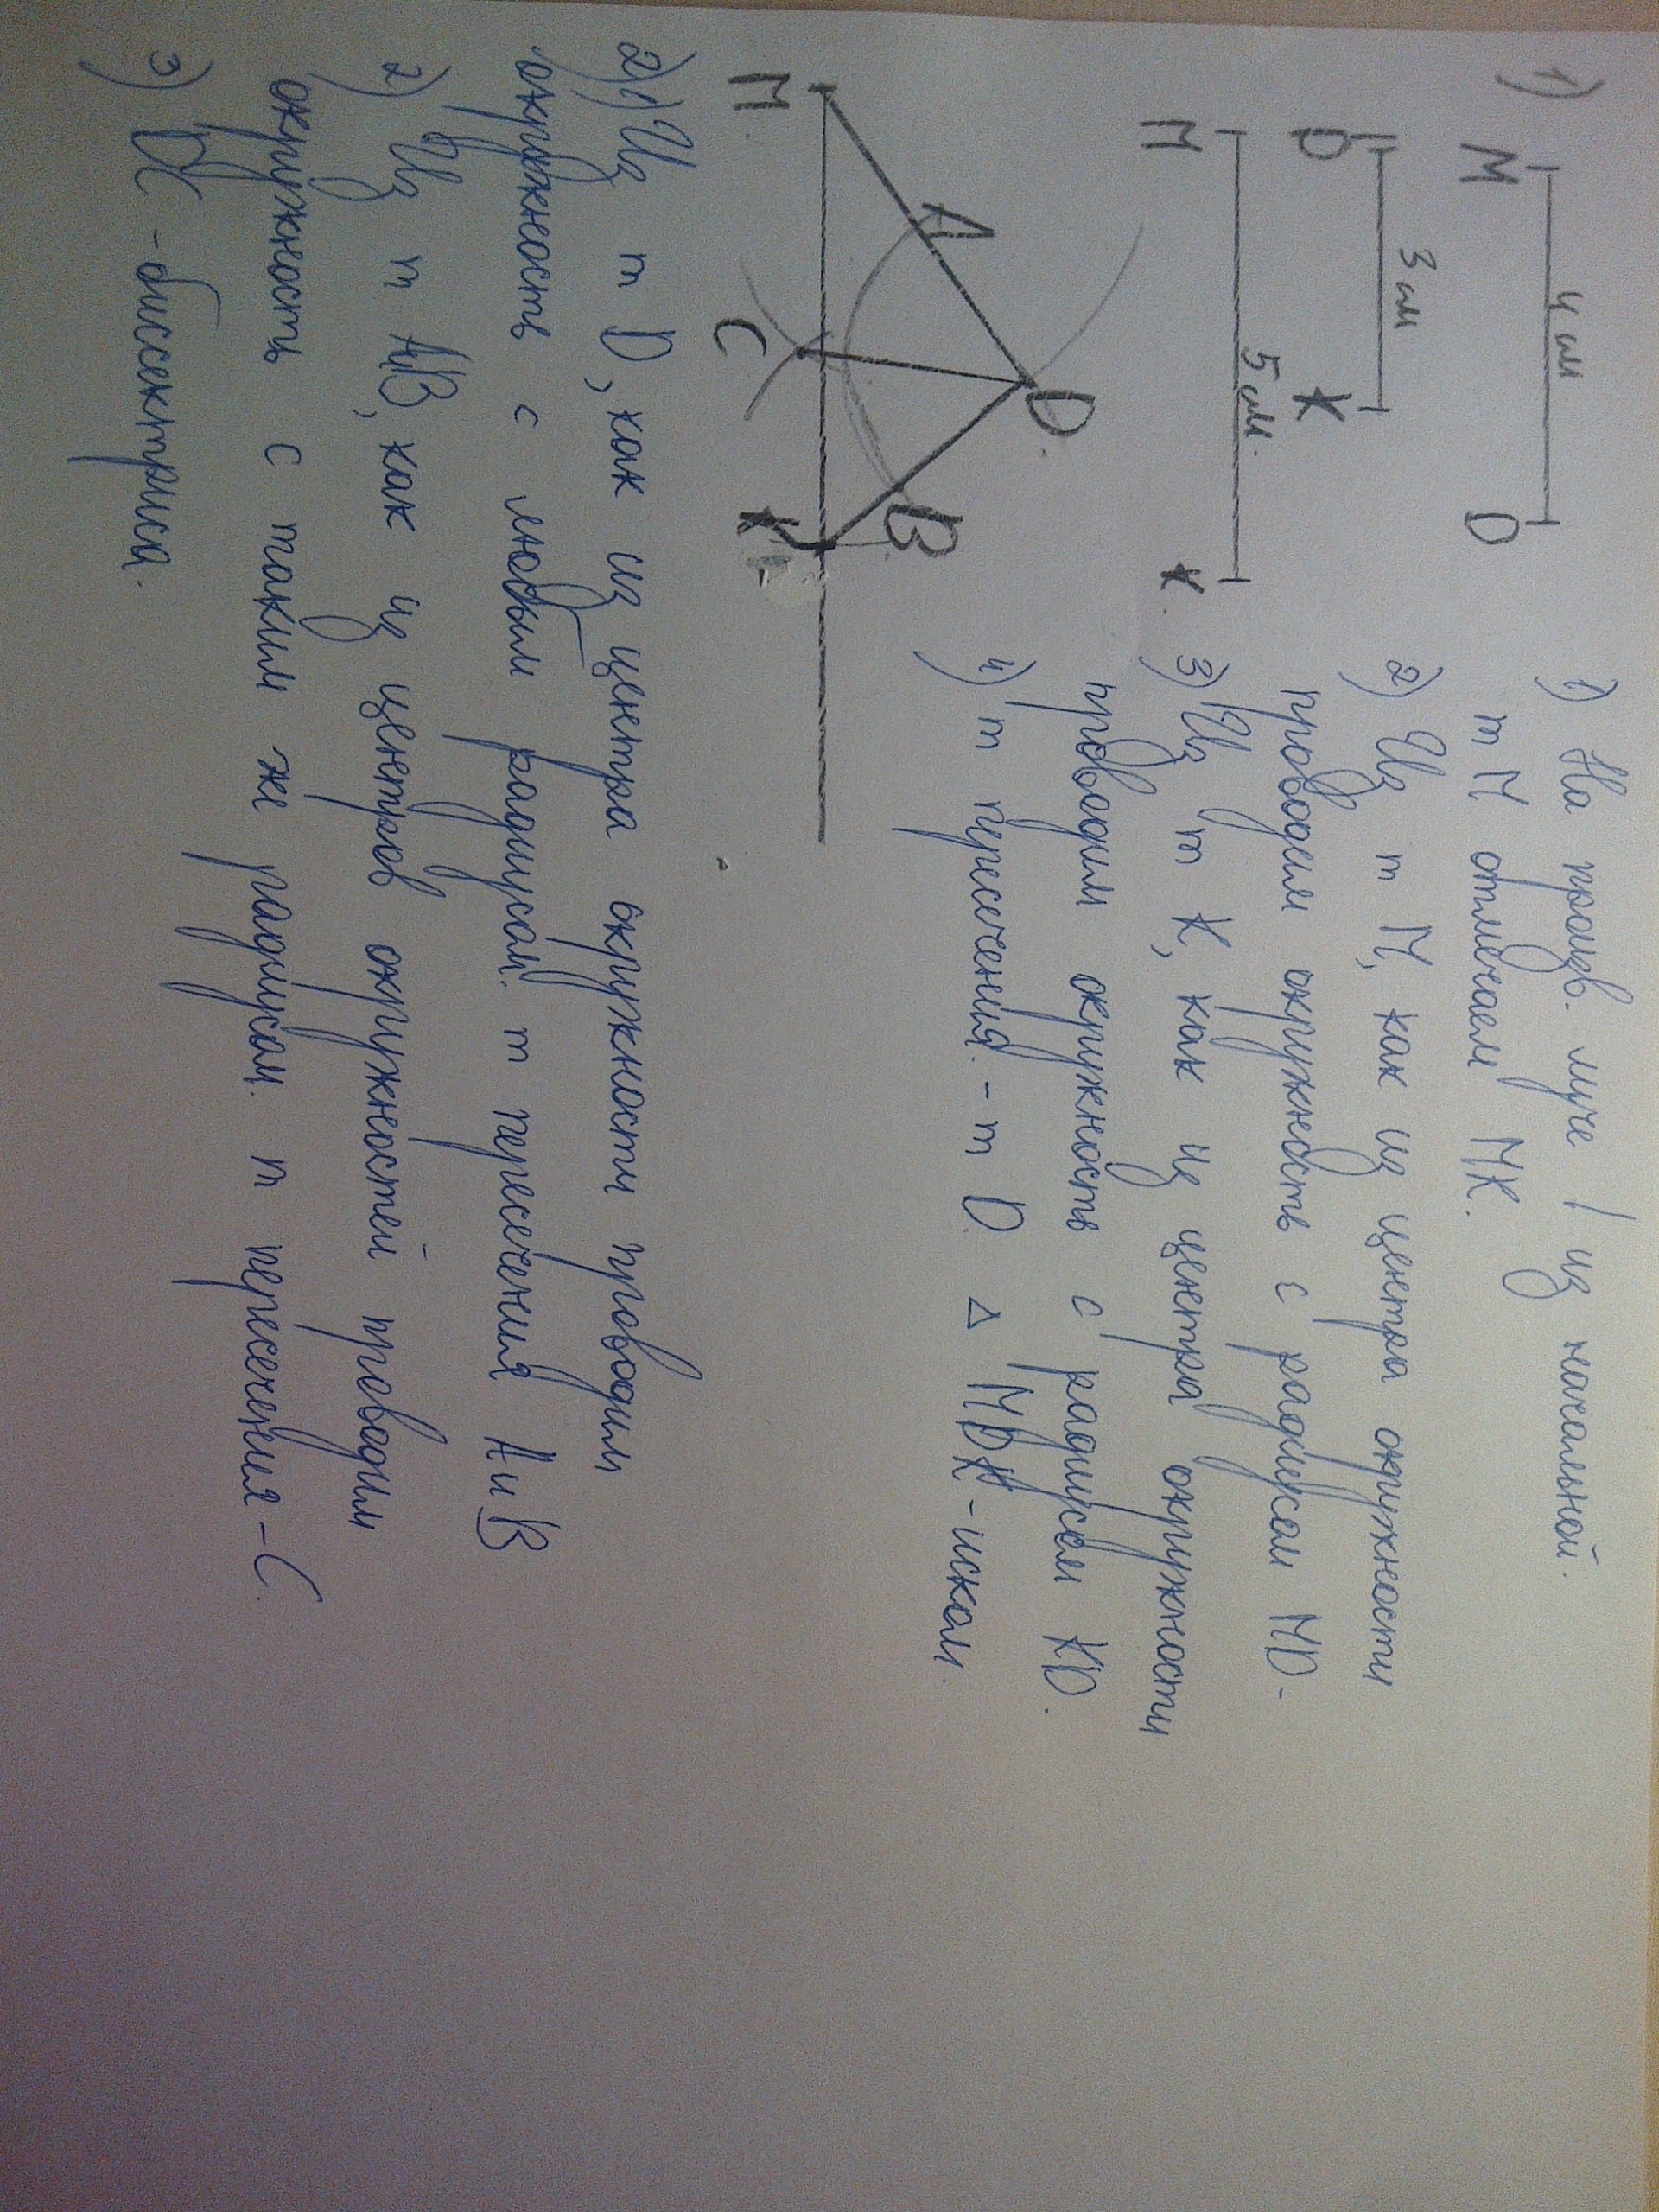 1)
M 4 см D
D 3 см K
M 5 см. K.
1) На произв. луче l из начальной
т M отмечаем MK.
2) Из т M, как из центра окружности
проводим окружность с радиусом MD.
3) Из т K, как из центра окружности
проводим окружность с радиусом KD.
4) т пересечения - т D. △ MDK - иском.
M A D B C K
2) 1) Из т D, как из центра окружности проводим
окружность с любым радиусом. т пересечения A и B
2) Из т A и B, как из центров окружностей проводим
окружность с таким же радиусом. т пересечения - C.
3) DC - биссектриса.